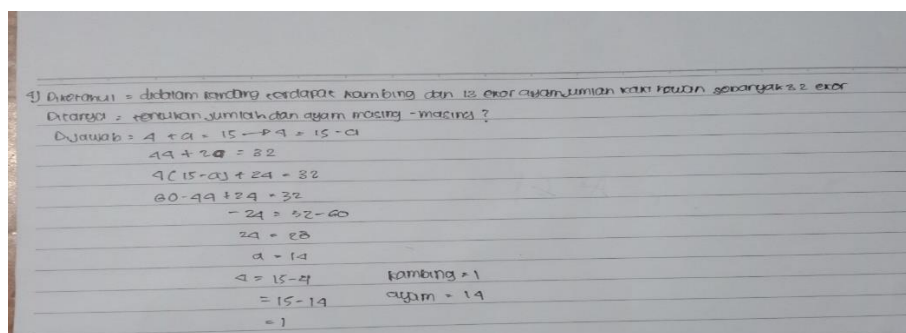 4) Diketahui = didalam kandang terdapat kambing dan 13 ekor ayam jumlah kaki hewan sebanyak 32 ekor
Ditanya = tentukan jumlah dan ayam masing - masing ?
Dijawab = 4 + a = 15 → 4 = 15 - a
44 + 2a = 32
4(15-a) + 24 = 32
60 - 44 + 24 = 32
- 24 = 32 - 60
24 = 28
a = 14
4 = 15 - 4 kambing = 1
= 15 - 14 ayam = 14
= 1